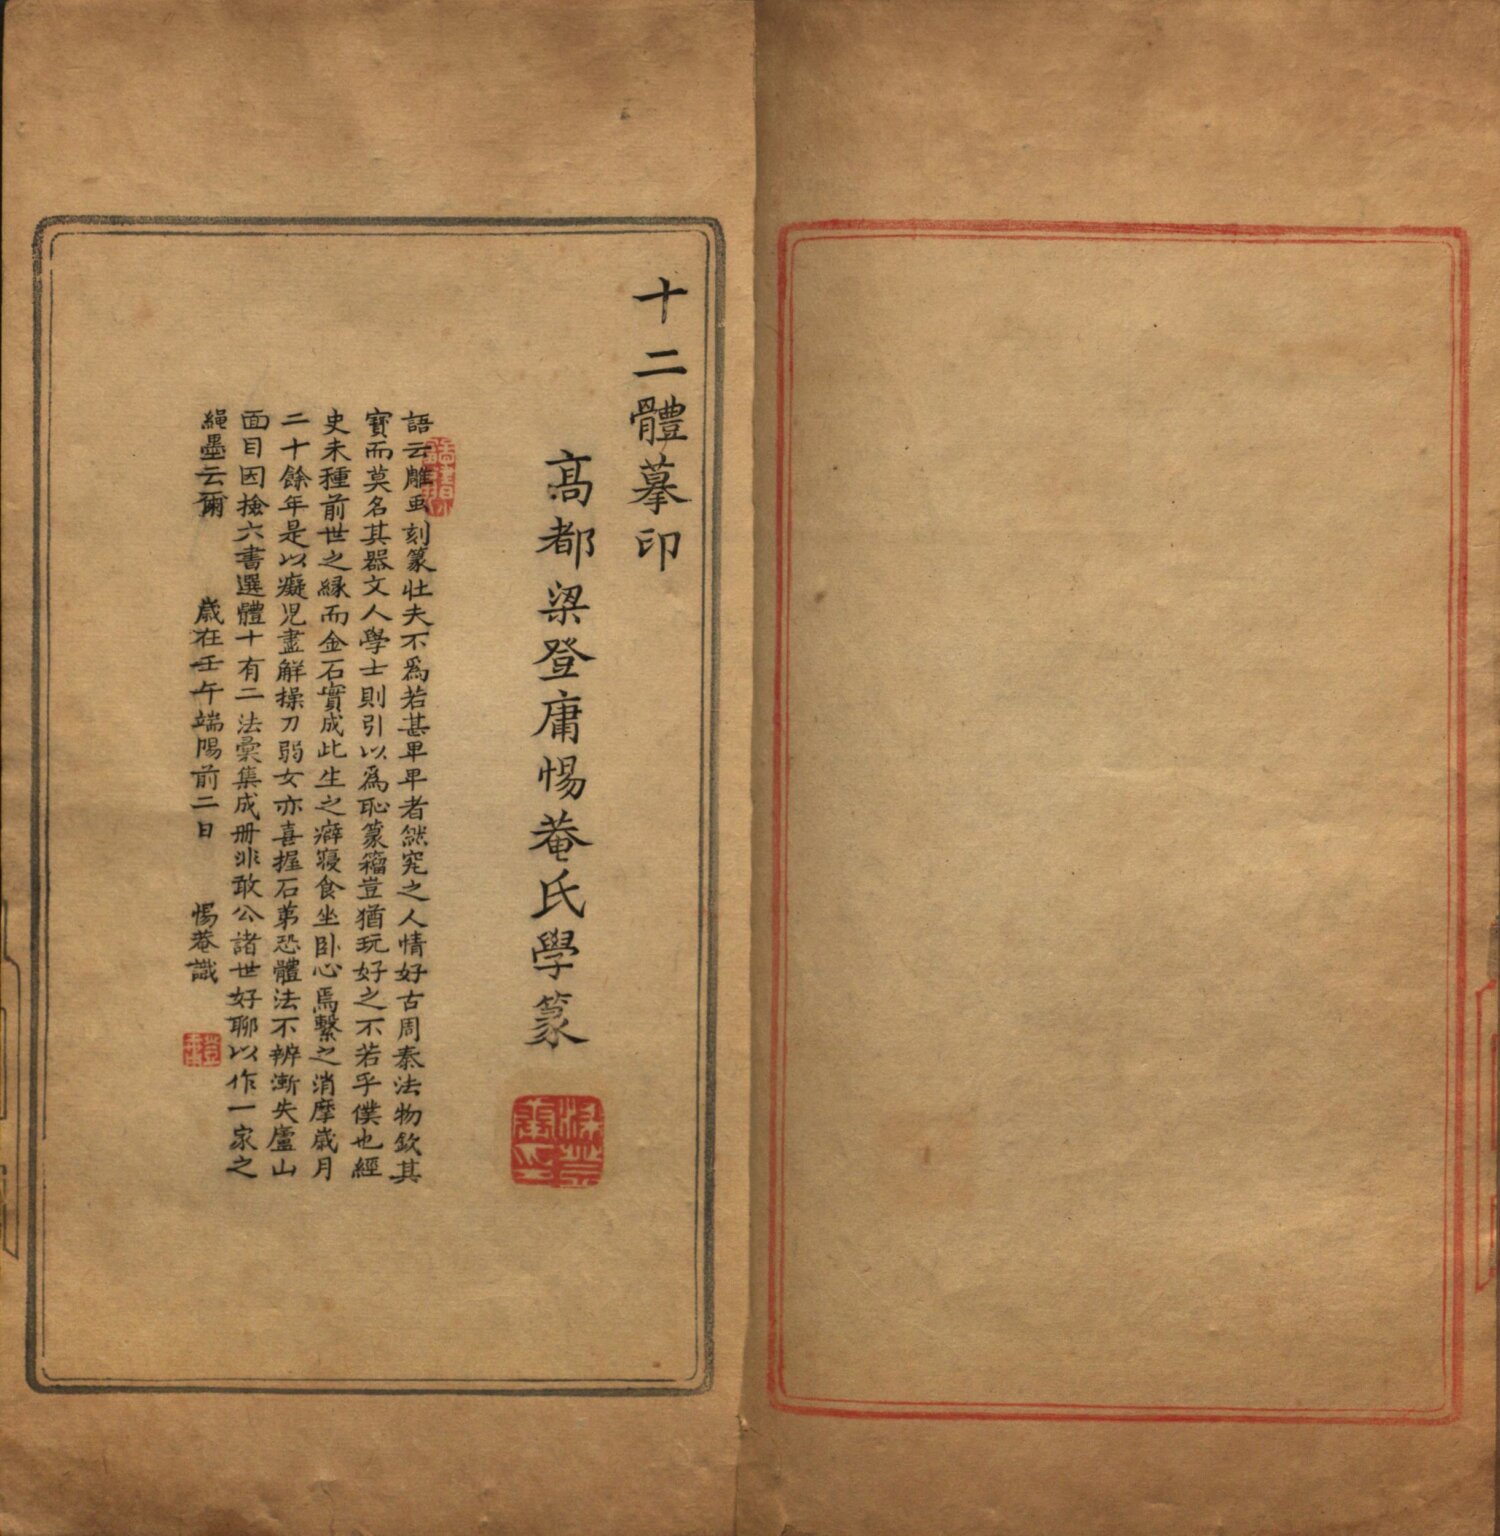 十二體摹印
高都梁登庸惕菴氏學篆
語云雕虫刻篆壯夫不爲若甚卑卑者然究之人情好古周秦法物欽其
寳而莫名其器文人學士則引以爲恥篆籀豈猶玩好之不若乎僕也經
史未種前世之緣而金石實成此生之癖寢食坐卧心焉繫之消摩歲月
二十餘年是以癡児盡解操刀弱女亦喜握石苐恐體法不辨漸失廬山
面目因撿六書選體十有二法彙集成册非敢公諸世好聊以作一家之
繩墨云爾　歲在壬午端陽前二日　惕菴識